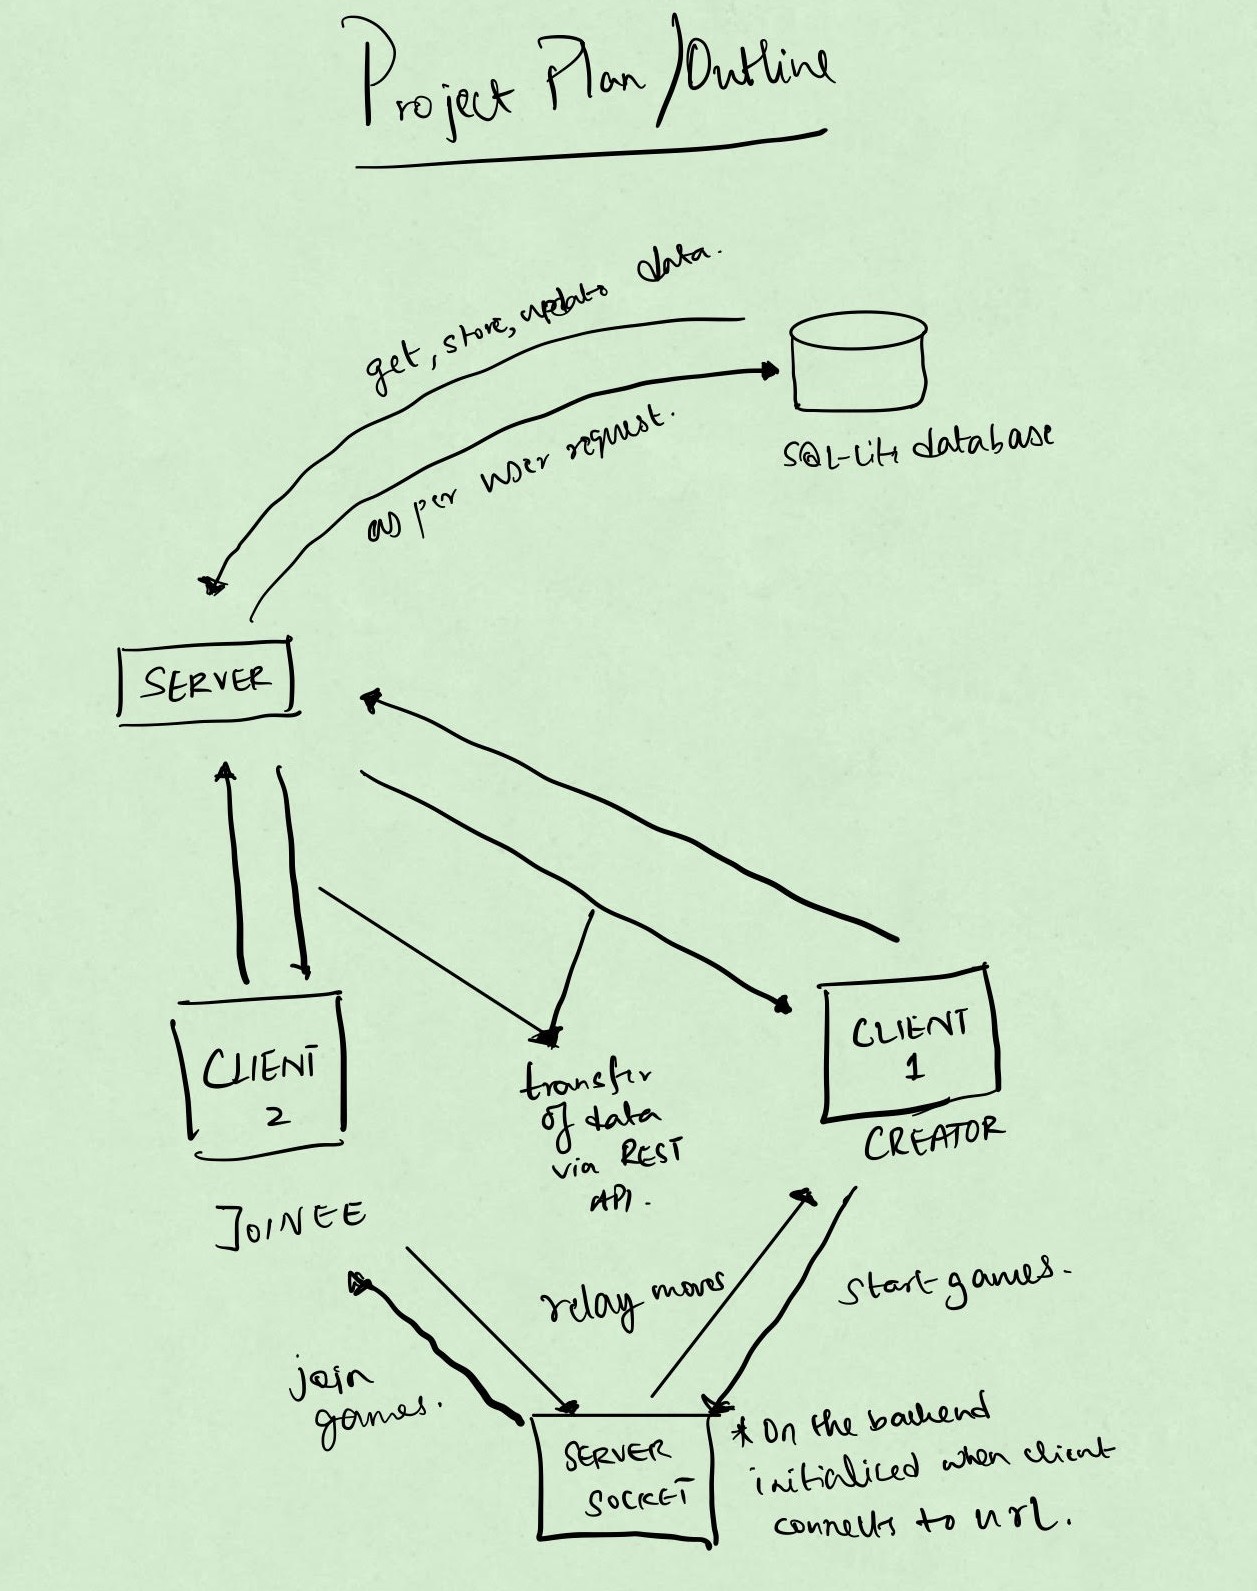 Project Plan/Outline
get, store, update data.
as per user request.
SQL-Lite database
SERVER
CLIENT
1
CREATOR
CLIENT
2
JOINEE
transfer
of data
via REST
API.
relay moves
start games.
join
games.
SERVER
SOCKET
* On the backend
initialised when client
connects to url.